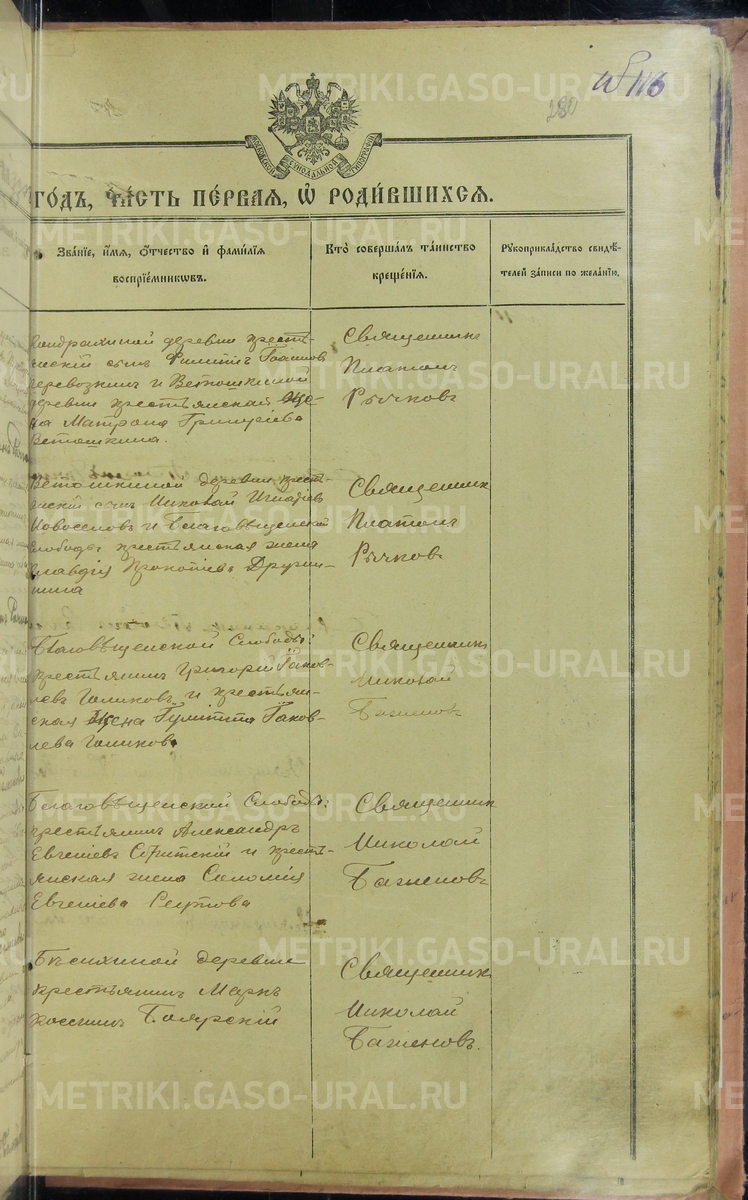 № 116
280
МОСКОВСКОЙ СѴНОДАЛЬНОЙ ТИПОГРАФІИ
ГО́ДЪ, ЧА́СТЬ ПЕ́РВАЯ, Ѽ РОДИ́ВШИХСЯ.
ЗВА́НІЕ, И́МЯ, О́ТЧЕСТВО И҆ ФАМИ́ЛІЯ
ВОСПРІЕ́МНИКѠВЪ.
КТО̀ СОВЕРША́ЛЪ ТА́ИНСТВО
КРЕЩЕ́НІЯ.
РꙊКОПРИКЛА́ДСТВО СВИДѢ́-
ТЕЛЕЙ ЗА́ПИСИ ПО ЖЕЛА́НІЮ.
деревни крестья-
нскій сынъ Филиппъ
Перевозкинъ и Ветошкиной
деревни крестьянская же-
на Матрона Григорьева
Ветошкина.
Священникъ
Платонъ
Рычковъ
Ветошкиной деревни крестья-
нскій сынъ Николай Игнатьевъ
Новоселовъ и Благовѣщенской
Слободы крестьянская жена
Клавдія Прокопьева
Священникъ
Платонъ
Рычковъ
Благовѣщенской Слободы:
крестьянинъ Григорій Яков-
левъ Голиковъ и крестьян-
ская жена Яков-
лева Голикова
Священникъ
Николай
Баженовъ
Благовѣщенской Слободы:
крестьянинъ Александръ
Евгеніевъ и кресть-
янская жена Соломія
Евгеніева Реутова
Священникъ
Николай
Баженовъ
деревни
крестьянинъ Маркъ
Боярскій
Священникъ
Николай
Баженовъ.
METRIKI.GASO-URAL.RU